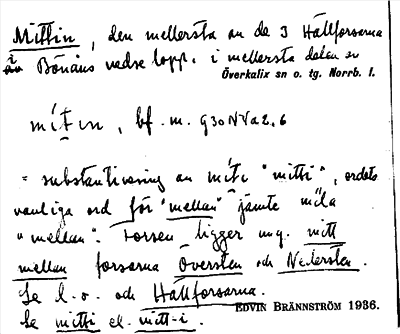 Mittin, den mellersta av de 3 Hällforsarna
i Bönäns nedre lopp. i mellersta delen av
Överkalix sn o. tg. Norrb. l.
mítin, bf. m.
= substantivering av míti "mitti", ordets
vanliga ord för "mellan" jämte mila
"mellan". Forsen ligger ung. mitt
mellan forsarna Översten och Nedersten.
Se l. o. och Hällforsarna.
EDVIN BRÄNNSTRÖM 1936.
Se mitti el. mitt-i.